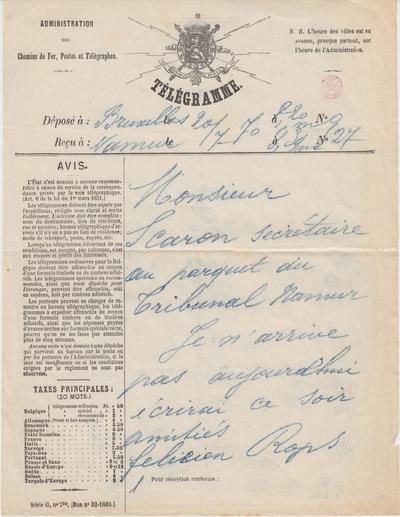 ADMINISTRATION
DES
Chemins de Fer, Postes et Télégraphes.
N. B. L'heure des villes est en
avance, presque partout, sur
l'heure de l'Administration.
TÉLÉGRAMME.
Déposé à : Bruxelles le 20/7 70 à N° 9
Reçu à : Namur le à N° 27
AVIS.
L'État n'est soumis à aucune responsa-
bilité à raison du service de la correspon-
dance privée par la voie télégraphique.
(Art. 6 de la loi du 1er mars 1851.)
Les télégrammes doivent être signés par
l'expéditeur, rédigés avec clarté et écrits
lisiblement. L'adresse doit être complète :
nom du destinataire, lieu de résidence,
rue et numéro; bureau télégraphique d'arri-
vée s'il n'y en a pas au lieu de résidence;
mode de transport, poste, exprès, etc.
Lorsqu'un télégramme, s'écartant de ces
conditions, est accepté, par tolérance, c'est
aux risques de l'expéditeur.
Les télégrammes ordinaires pour la Bel-
gique doivent être affranchis au moyen
d'une formule timbrée ou de timbres
adhésifs. Les télégrammes spéciaux ou recom-
mandés, ainsi que toute dépêche pour
l'étranger, peuvent être affranchis, soit
en espèces, soit par timbres adhésifs.
Les porteurs peuvent se charger de re-
mettre au bureau télégraphique, les télé-
grammes à expédier affranchis au moyen
d'une formule timbrée ou de timbres
adhésifs, ainsi que les réponses payées
d'avance écrites sur formule spéciale verte,
pourvu qu'on ne les fasse pas attendre
plus de cinq minutes.
Aucune suite n'est donnée à une dépêche
qui parvient au bureau par la poste ou
par les porteurs de l'Administration, si la
taxe est insuffisante ou si les conditions
exigées par le règlement ne sont pas
observées.
TAXES PRINCIPALES :
(20 MOTS.)
Belgique
télégramme ordinaire. Fr. » 50
spécial
recommandé
Allemagne
Danemark
Espagne
États Romains
France
Italie
Norvége
Pays-Bas
Portugal
Prusse et Saxe
Russie d'Europe
Suède
Suisse
Turquie d'Europe
Série G, n° 7bis. (Bon n° 32-1868.)
Monsieur
Scaron Secrétaire
au parquet du
Tribunal Namur
Je n'arrive
pas aujourdhui
écrirai ce soir
amitiés
felicien Rops
Pour réception conforme :